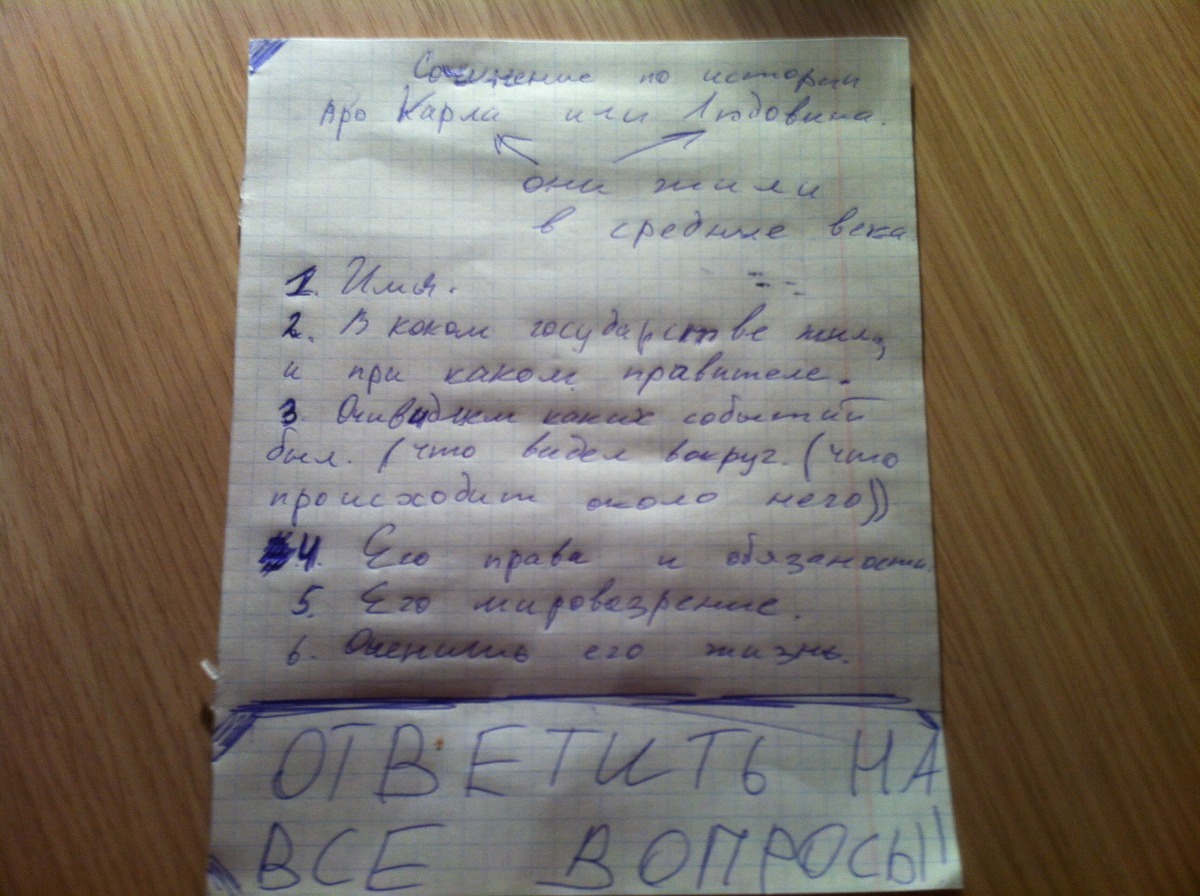 Сочинение по истории
про Карла или Людовика.
они жили
в средние века
1. Имя.
2. В каком государстве жил,
и при каком правителе.
3. Очивидцем каких событий
был. (что видел вокруг. (что
происходит около него))
4. Его права и обязаности.
5. Его мировозрение.
6. Оценить его жизнь.
ОТВЕТИТЬ НА
ВСЕ ВОПРОСЫ!